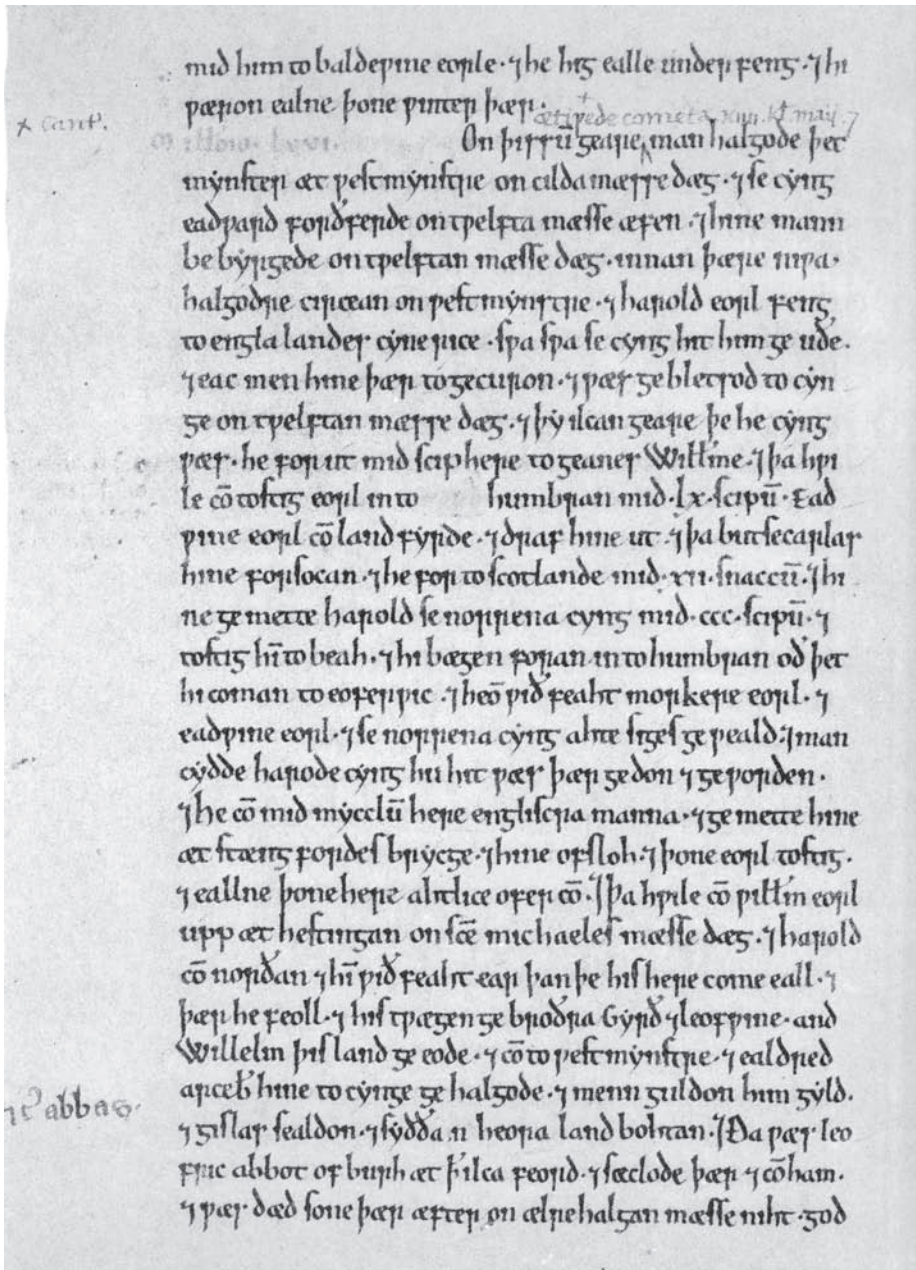 mid him to baldeƿine eorle · ⁊ he hig ealle under feng · ⁊ hi
ƿæron ealne þone ƿinter þær ·
× Cant'.
ætiƿede cometa xiiii kł maij ⁊
millmo . lxvi . On þissū geare man halgode þet
mynster æt ƿestmynstre on cilda mæsse dæg · ⁊ se cyng
eadƿard forðferde on tƿelfta mæsse æfen · ⁊ hine mann
be byrgede on tƿelftan mæsse dæg · innan þære niƿa ·
halgodre circean on ƿestmynstre · ⁊ harold eorl feng
to engla landes cynerice · sƿa sƿa se cyng hit him ge uðe ·
⁊ eac men hine þær to gecuron · ⁊ ƿæs ge bletsod to cyn
ge on tƿelftan mæsse dæg · ⁊ þy ilcan geare þe he cyng
ƿæs · he for ut mid sciphere to geanes Willme · ⁊ þa hƿi
le cō tostig eorl in to humbran mid · lx · scipū · Ead
ƿine eorl cō land fyrde · ⁊ draf hine ut · ⁊ þa butsecarlas
hine forsocan · ⁊ he for to scotlande mid · xii · snaccū · ⁊ hi
ne ge mette harold se norrena cyng mid · ccc · scipū · ⁊
tostig hī to beah · ⁊ hi bægen foran in to humbran oð þet
hi coman to eoferƿic · ⁊ heō ƿið feaht morkere eorl · ⁊
eadƿine eorl · ⁊ se norrena cyng ahte siges ge ƿeald · ⁊ man
cydde harode cyng hu hit ƿæs þær ge don ⁊ geƿorden ·
⁊ he cō mid mycclū here engliscra manna · ⁊ ge mette hine
æt stæng fordes brycge · ⁊ hine ofsloh · ⁊ þone eorl tostig ·
⁊ eallne þone here ahtlice ofer cō · ⁊ þa hƿile cō ƿillm eorl
upp æt hestingan on scē michaeles mæsse dæg · ⁊ harold
cō norðan ⁊ hī ƿið feaht ear þan þe his here come eall · ⁊
þær he feoll · ⁊ his tƿægen ge broðra Gyrð ⁊ leofƿine · and
Willelm þis land ge eode · ⁊ cō to ƿestmynstre · ⁊ ealdred
arceb hine to cynge ge halgode · ⁊ menn guldon him gyld ·
abbas ·
⁊ gislas sealdon · ⁊ syððan heora land bohtan · ⁊ Ða ƿæs leo
fric abbot of burh æt þ ilca feord · ⁊ sæclode þær ⁊ cō ham ·
⁊ ƿæs dæd sone þær æfter on ælre halgan mæsse niht · god